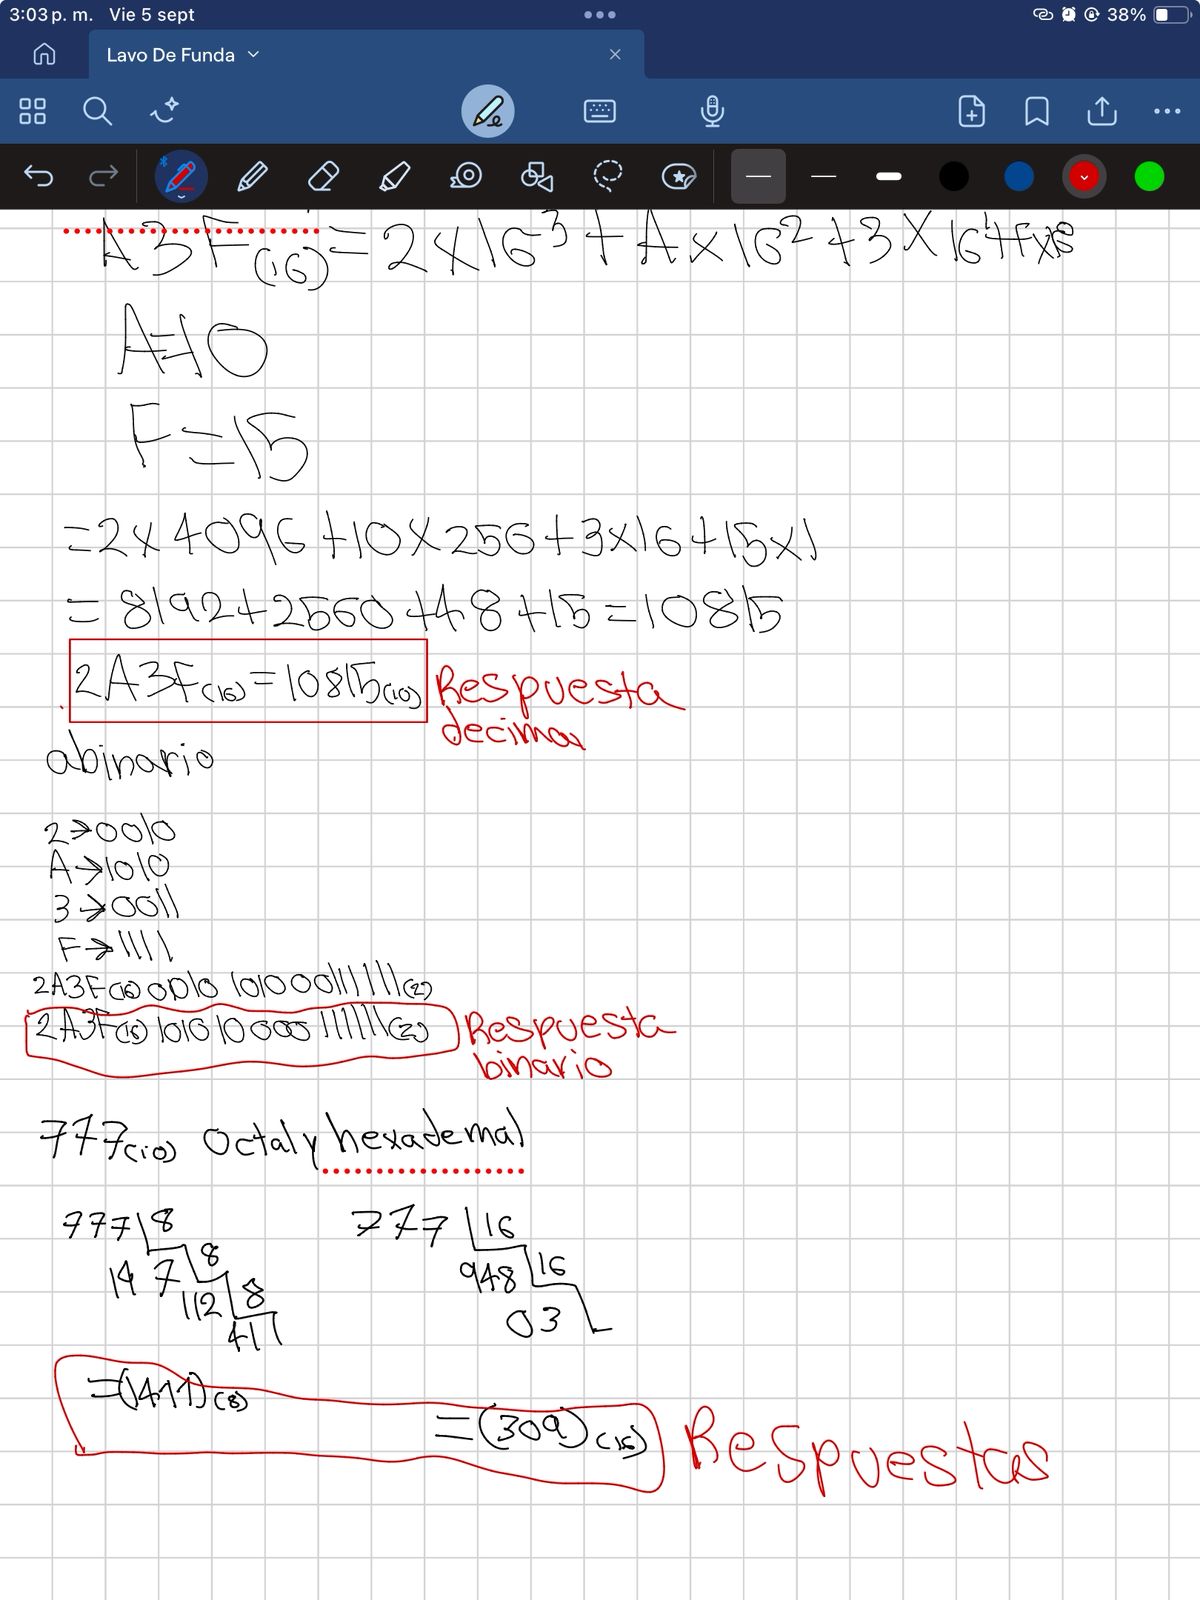 3:03 p. m. Vie 5 sept
38%
Lavo De Funda
A3F(16)=2x16³+Ax16²+3x16¹+Fx16⁰
A=10
F=15
=2x4096+10x256+3x16+15x1
=8192+2560+48+15=10815
2A3F(16)=10815(10)
Respuesta
decimal
abinario
2→0010
A→1010
3→0011
F→1111
2A3F(16) 0010 101000111111(2)
2A3F(16) 1010 10000 111111(2)
Respuesta
binario
777(10) Octal y hexademal
777 8
777 16
14 7 8
948 16
112 8
03
411
=(1411)(8)
=(309)(16)
Respuestas